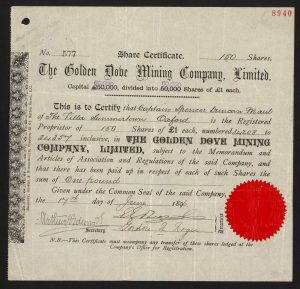 8940
No. 577 Share Certificate. 150 Shares.
The Golden Dove Mining Company, Limited.
Capital £50,000, divided into 50,000 Shares of £1 each.
This is to Certify that Captain Spencer Duncan
of The Villa Summertown Oxford is the Registered
Proprietor of 150 Shares of £1 each, numbered 34208 to
34357 inclusive, in THE GOLDEN DOVE MINING
COMPANY, LIMITED, subject to the Memorandum and
Articles of Association and Regulations of the said Company, and
that there has been paid up in respect of each of such Shares the
sum of One pound
Given under the Common Seal of the said Company,
the 17th day of June 189
Directors
Secretary.
N.B.—This Certificate must accompany any transfer of these shares lodged at the
Company's Office for Registration.